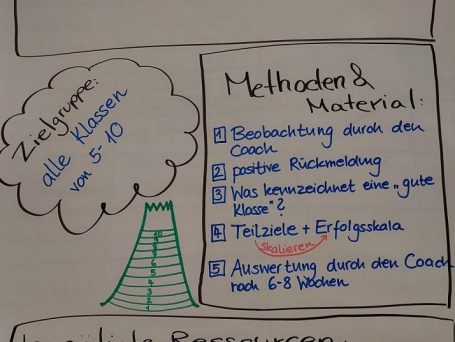 Zielgruppe:
alle Klassen
von 5-10
Methoden &
Material:
1 Beobachtung durch den
Coach
2 positive Rückmeldung
3 Was kennzeichnet eine „gute
Klasse"?
4 Teilziele + Erfolgsskala
skalieren
5 Auswertung durch den Coach
nach 6-8 Wochen
10
9
8
7
6
5
4
3
2
1
Ressourcen: